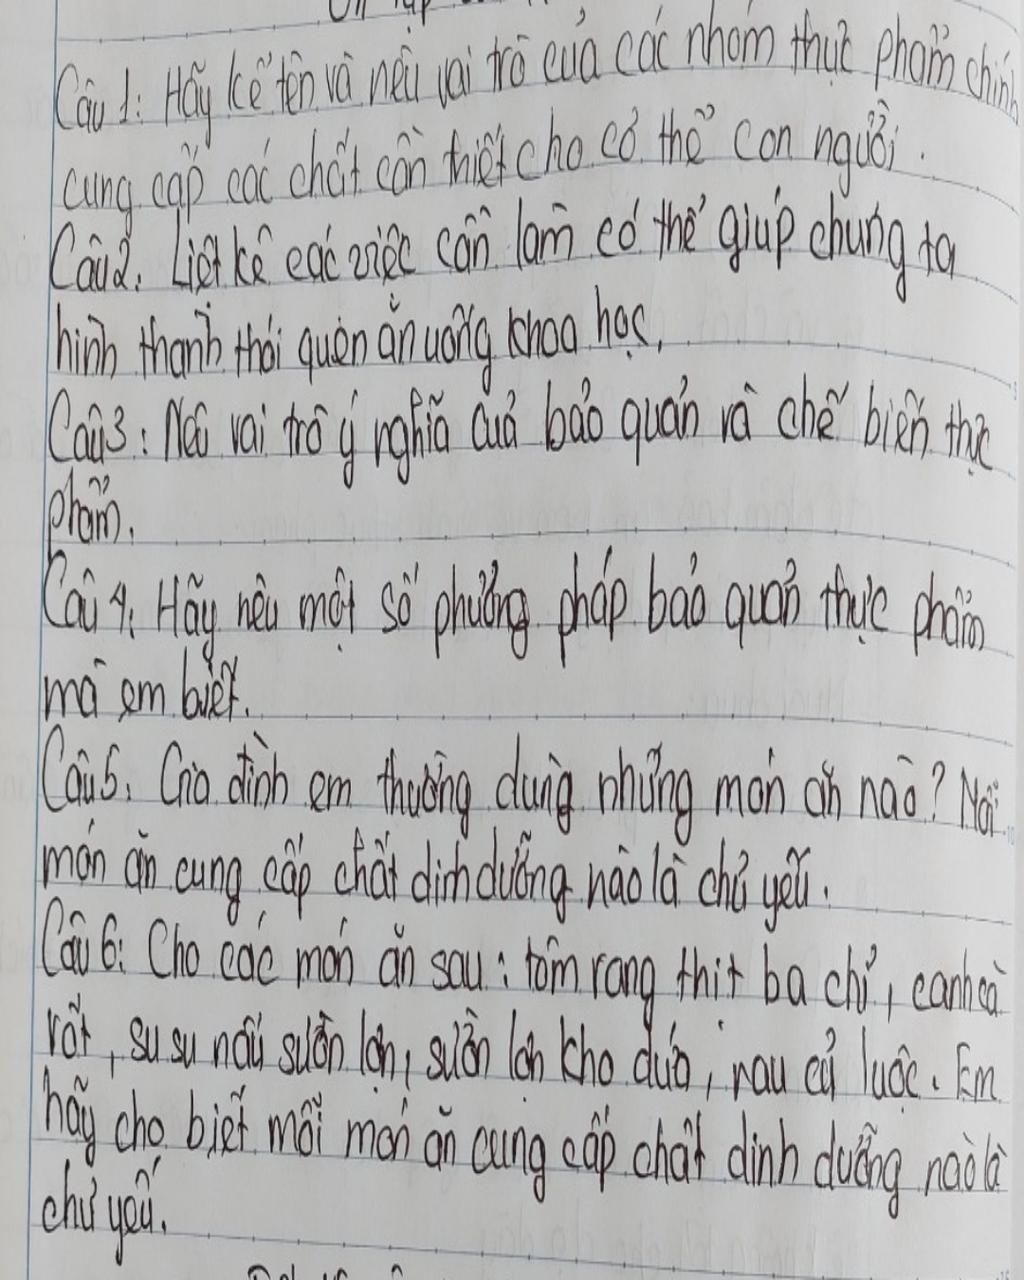 Câu 1: Hãy kể tên và nêu vai trò của các nhóm thực phẩm chính
cung cấp các chất cần thiết cho cơ thể con người.
Câu 2. Liệt kê các việc cần làm có thể giúp chúng ta
hình thành thói quen ăn uống khoa học.
Câu 3: Nêu vai trò ý nghĩa của bảo quản và chế biến thực
phẩm.
Câu 4: Hãy nêu một số phương pháp bảo quản thực phẩm
mà em biết.
Câu 5. Gia đình em thường dùng những món ăn nào? Mỗi
món ăn cung cấp chất dinh dưỡng nào là chủ yếu.
Câu 6: Cho các món ăn sau: tôm rang thịt ba chỉ, canh cà
rốt, su su nấu sườn lợn, sườn lợn kho dứa, rau củ luộc. Em
hãy cho biết mỗi món ăn cung cấp chất dinh dưỡng nào là
chủ yếu.